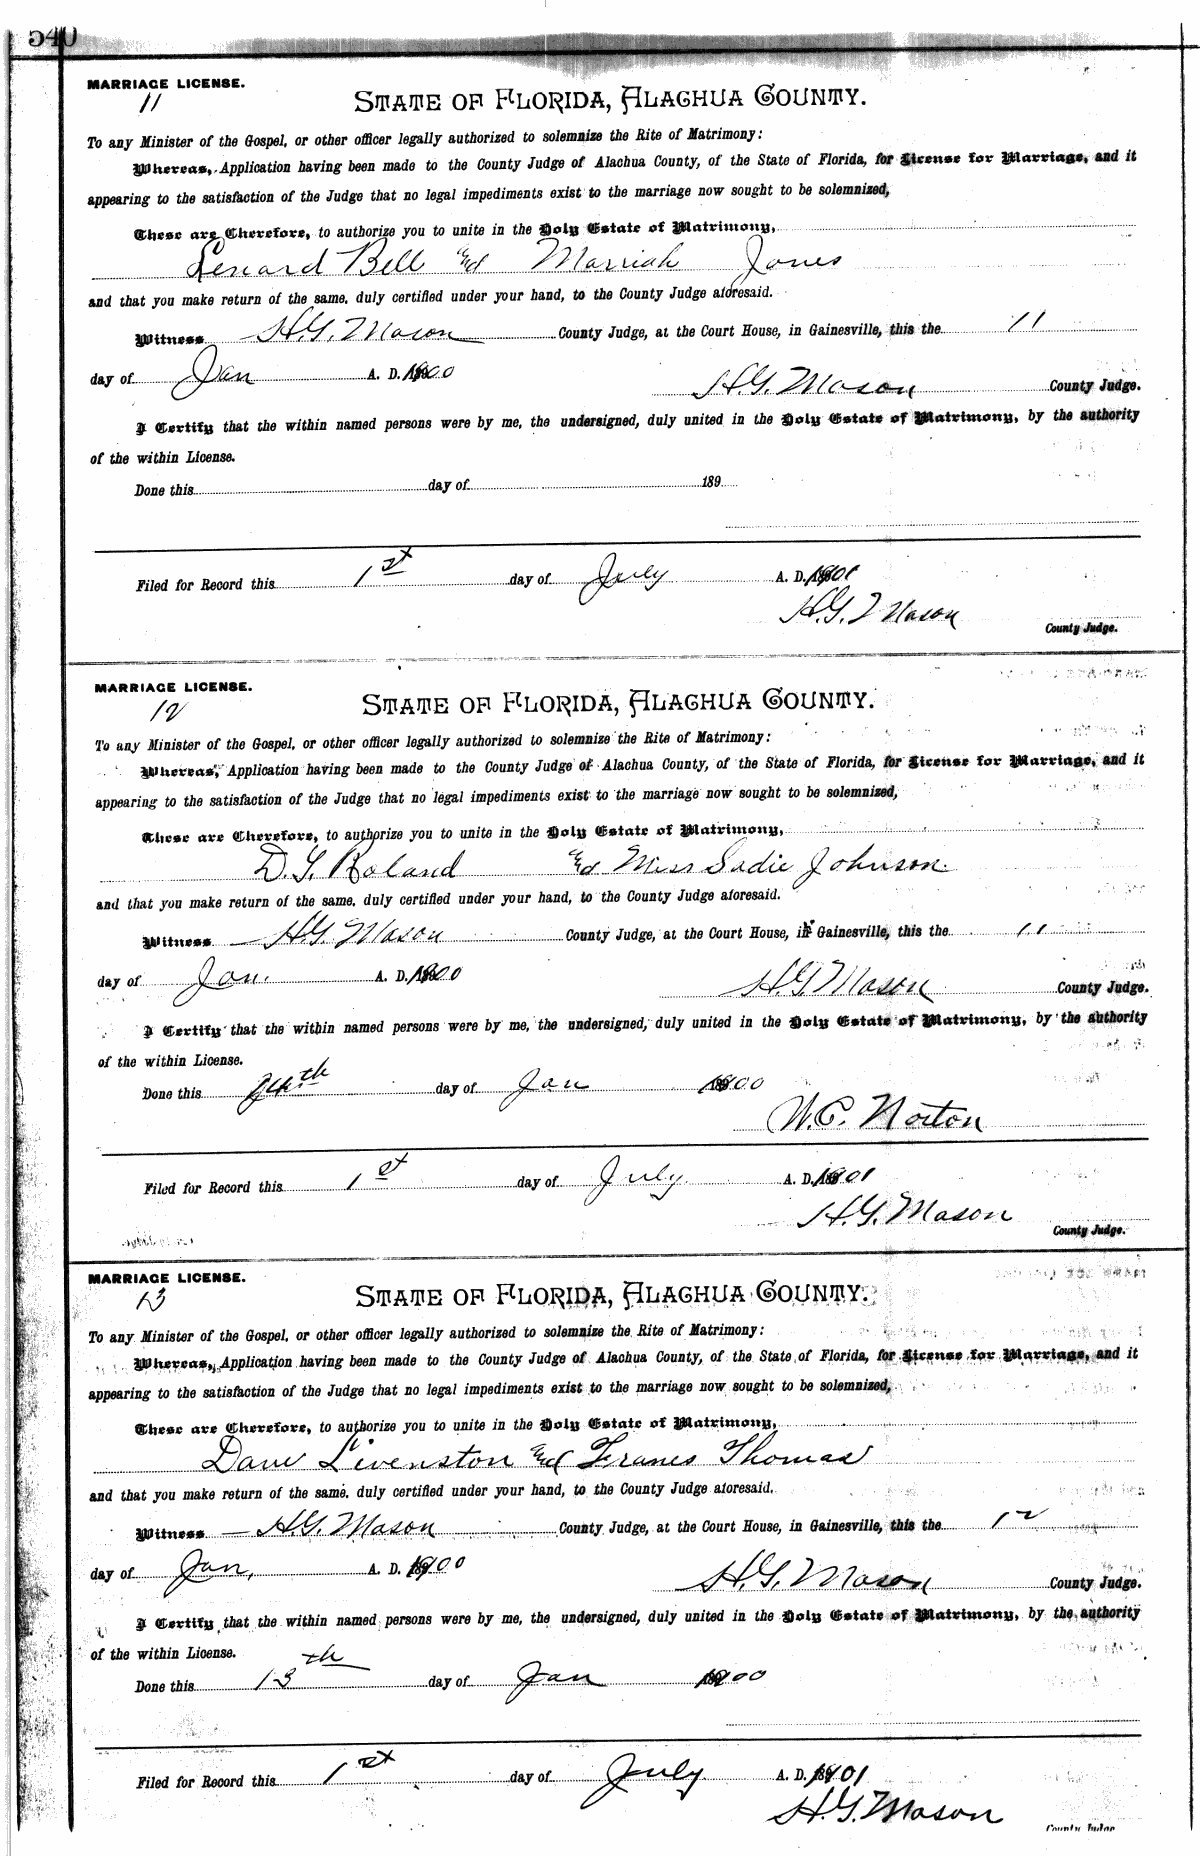 540
MARRIAGE LICENSE.
11
STATE OF FLORIDA, ALACHUA COUNTY.
To any Minister of the Gospel, or other officer legally authorized to solemnize the Rite of Matrimony:
Whereas, Application having been made to the County Judge of Alachua County, of the State of Florida, for License for Marriage, and it
appearing to the satisfaction of the Judge that no legal impediments exist to the marriage now sought to be solemnized,
These are Therefore, to authorize you to unite in the Holy Estate of Matrimony,
Lenard Bell and Marriah Jones
and that you make return of the same, duly certified under your hand, to the County Judge aforesaid.
Witness H.G. Mason County Judge, at the Court House, in Gainesville, this the 11
day of Jan A. D. 1900 H.G. Mason County Judge.
I Certify that the within named persons were by me, the undersigned, duly united in the Holy Estate of Matrimony, by the authority
of the within License.
Done this day of 189
Filed for Record this 1st day of July A. D. 1901
H.G. Mason
County Judge.
MARRIAGE LICENSE.
12
STATE OF FLORIDA, ALACHUA COUNTY.
To any Minister of the Gospel, or other officer legally authorized to solemnize the Rite of Matrimony:
Whereas, Application having been made to the County Judge of Alachua County, of the State of Florida, for License for Marriage, and it
appearing to the satisfaction of the Judge that no legal impediments exist to the marriage now sought to be solemnized,
These are Therefore, to authorize you to unite in the Holy Estate of Matrimony,
Roland and Miss Sadie Johnson
and that you make return of the same, duly certified under your hand, to the County Judge aforesaid.
Witness H.G. Mason County Judge, at the Court House, in Gainesville, this the 11
day of Jan. A. D. 1900 H.G. Mason County Judge.
I Certify that the within named persons were by me, the undersigned, duly united in the Holy Estate of Matrimony, by the authority
of the within License.
Done this day of Jan 1900
W.C. Norton
Filed for Record this 1st day of July A. D. 1901
H.G. Mason
County Judge.
MARRIAGE LICENSE.
13
STATE OF FLORIDA, ALACHUA COUNTY.
To any Minister of the Gospel, or other officer legally authorized to solemnize the Rite of Matrimony:
Whereas, Application having been made to the County Judge of Alachua County, of the State of Florida, for License for Marriage, and it
appearing to the satisfaction of the Judge that no legal impediments exist to the marriage now sought to be solemnized,
These are Therefore, to authorize you to unite in the Holy Estate of Matrimony,
Dave Livenston and Franes Thomas
and that you make return of the same, duly certified under your hand, to the County Judge aforesaid.
Witness H.G. Mason County Judge, at the Court House, in Gainesville, this the 12
day of Jan, A. D. 1900 H.G. Mason County Judge.
I Certify that the within named persons were by me, the undersigned, duly united in the Holy Estate of Matrimony, by the authority
of the within License.
Done this 13th day of Jan 1900
Filed for Record this 1st day of July A. D. 1901
H.G. Mason
County Judge